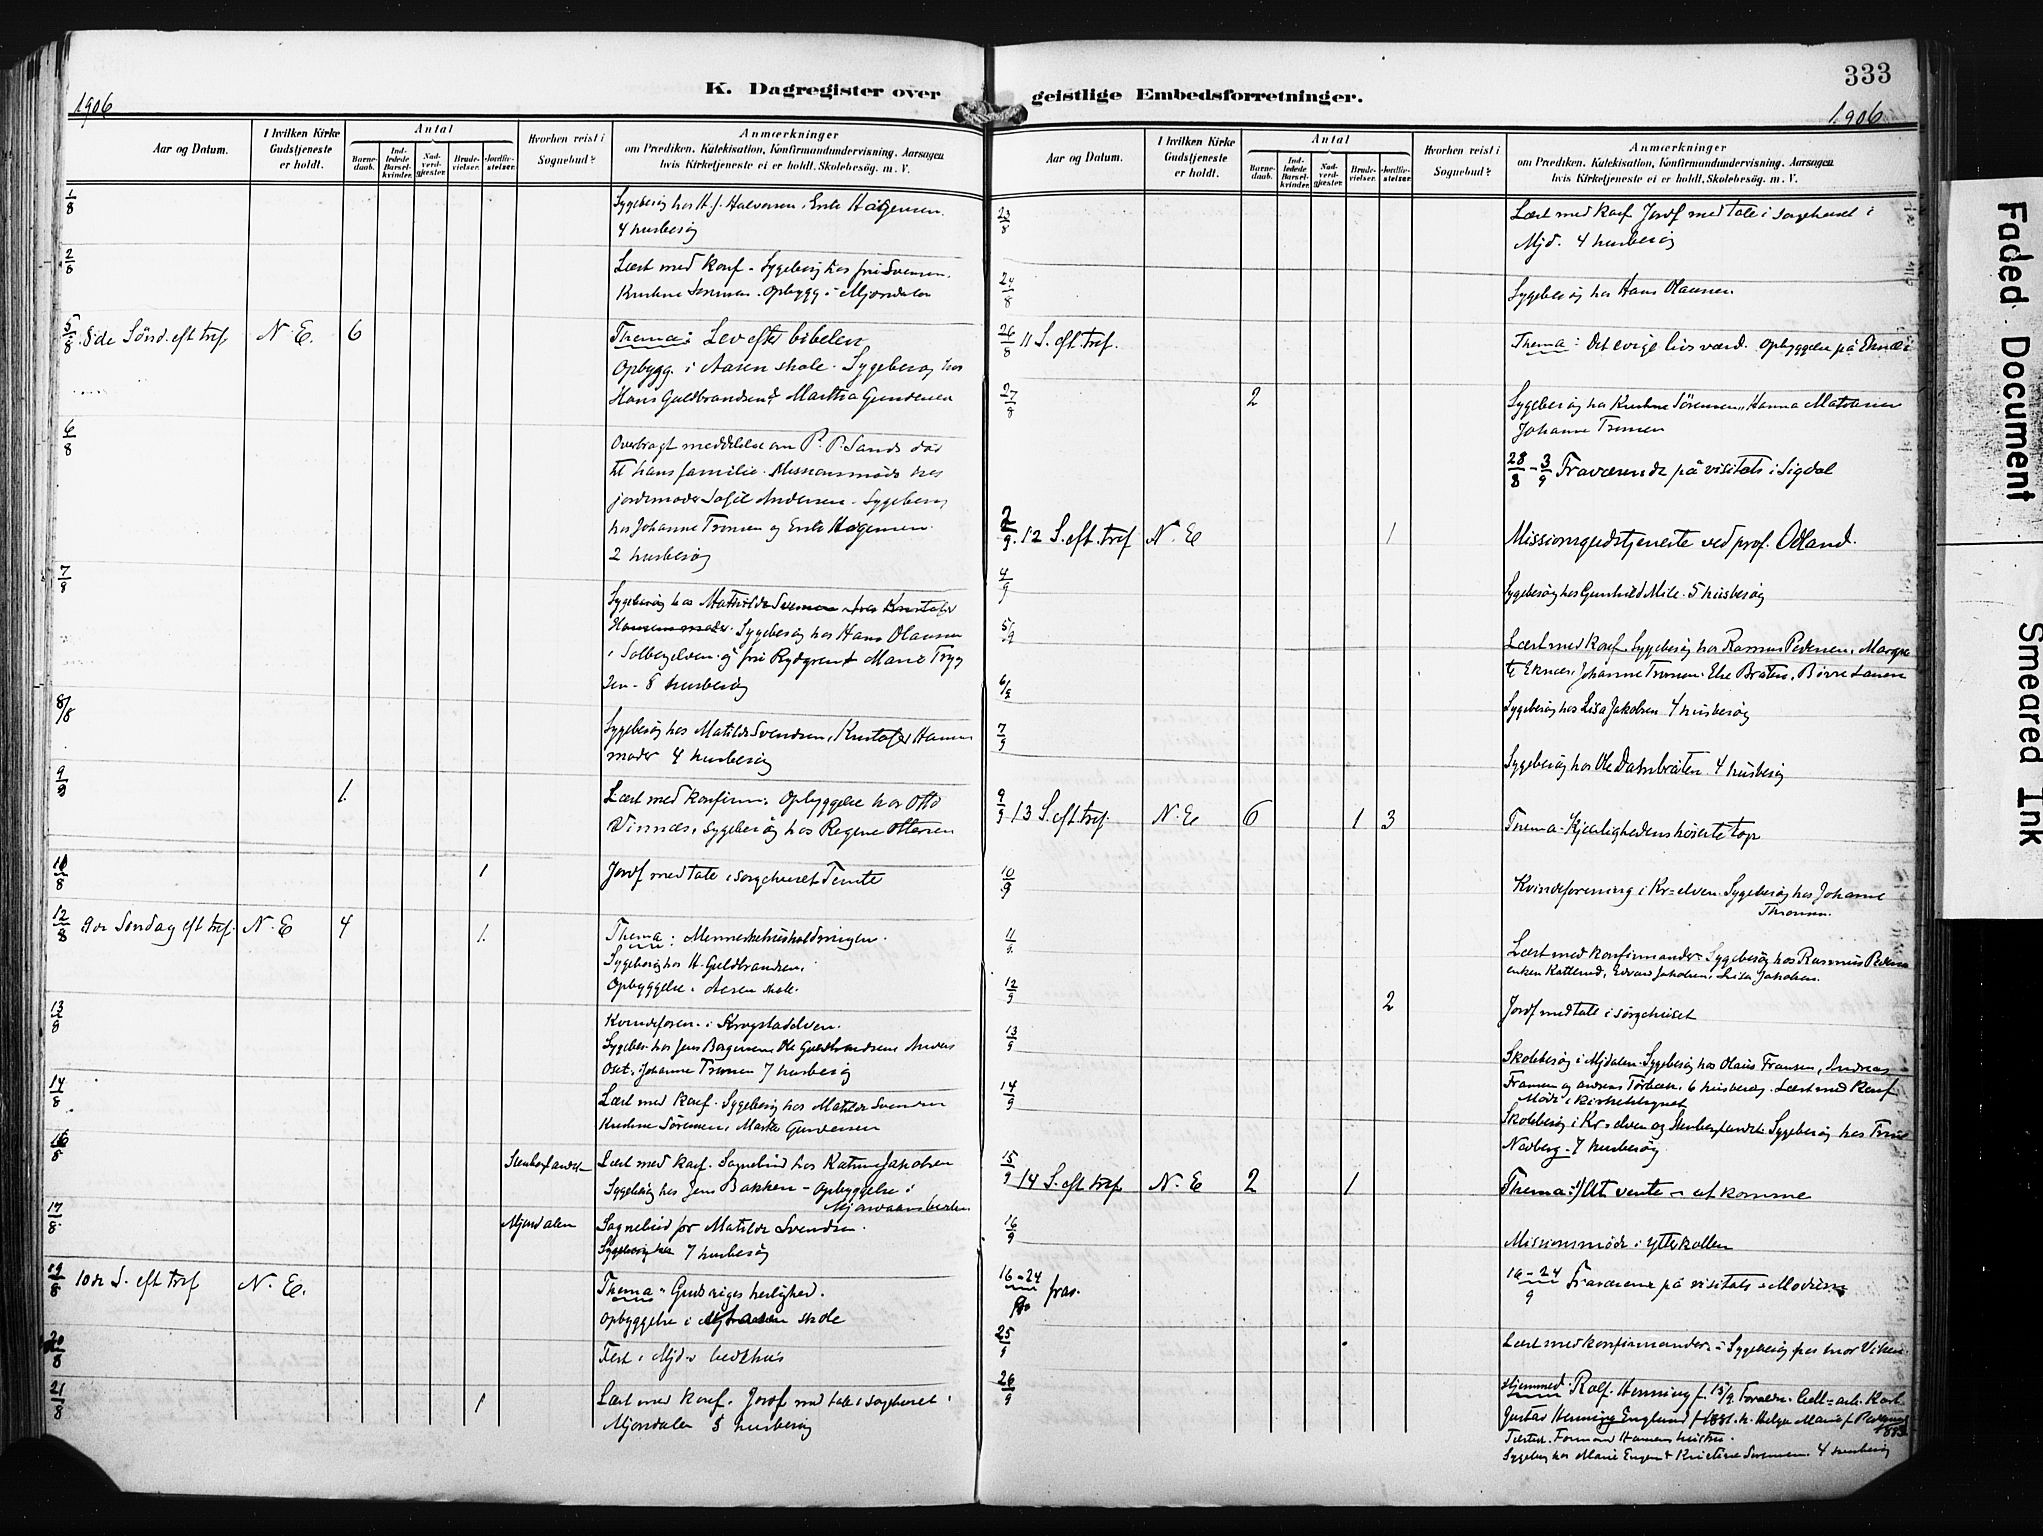 333
K. Dagregister over geistlige Embedsforretninger.
1906
1906
Aar og Datum.
I hvilken Kirke Gudstjeneste er holdt.
Antal
Barnedaab.
Indledede Barselkvinder.
Nadverdgjæster.
Brudevielser.
Jordfæstelser.
Hvorhen reist i Sognebud?
Anmærkninger
om Prædiken, Katekisation, Konfirmandundervisning, Aarsagen
hvis Kirketjeneste ei er holdt, Skolebesøg, m. V.
1/8 Sygebesøg hos H. J. Halvorsen, Enke Hagensen.
4 husbesøg
2/8 Læst med konf. Sygebesøg hos fru Svensen.
Opbygg. i Mjøndalen
5/8 8de Sønd. eft tref. N. E. 6 Thema: Lev efter bibelen
Opbygg. i Aasen skole. Sygebesøg hos
Hans Guldbrandsen & Martha Gundersen
6/8 Overbragt meddelelse om P. P. Sands død
til hans familie. Missionsmøde hos
jordemoder Sofie Andersen. Sygebesøg
hos Johanne Tronsen og Enke Hagensen.
2 husbesøg
7/8 Sygebesøg hos Mathilde Svensen hos Kristofer
Hansens moder. Sygebesøg hos Hans Olausen
i Solbergelven og fru Rydgren & Marie Tryg
sen - 8 husbesøg
8/8 Sygebesøg hos Matilde Svendsen, Kristofer Hansens
moder 4 husbesøg
9/8 1. Læst med konfirm. Opbyggelse hos Otto
Vinnæs, sygebesøg hos Regine Ottersen
10/8 1 Jordf med tale i sørgehuset Temte
12/8 9de Søndag eft tref. N. E 4 1. Thema: Menneskehusholdningen.
Sygebesøg hos H. Guldbrandsen.
Opbyggelse i Aasen skole.
13/8 Kvindeforen. i Krogstadelven.
Sygebes. hos Jens Borgersen Ole Guldbrandsen Anders
Johanne Tronsen 7 husbesøg
14/8 Læst med konf. Sygebesøg hos Matilde Svendsen
Kristine Sørensen, Marthe Gundersen
16/8 Stenberglandet Læst med konf. Sognebud hos Katrine Jakobsen
Sygebesøg hos Jens Bakken - Opbyggelse i
17/8 Mjøndalen Sognebud for Matilde Svendsen.
Sygebesøg hos 7 husbesøg
19/8 10de S. eft tref N. E. Thema: Gudsriges herlighed.
Opbyggelse i skole
20/8 Fest i Mjd.s bedehus
21/8 1 Læst med konf. Jordf med tale i sørgehuset i
Mjøndalen 5 husbesøg
Aar og Datum.
I hvilken Kirke Gudstjeneste er holdt.
Antal
Barnedaab.
Indledede Barselkvinder.
Nadverdgjæster.
Brudevielser.
Jordfæstelser.
Hvorhen reist i Sognebud?
Anmærkninger
om Prædiken, Katekisation, Konfirmandundervisning, Aarsagen
hvis Kirketjeneste ei er holdt, Skolebesøg, m. V.
23/8 Læst med konf Jordf med tale i sørgehuset i
Mjd. 4 husbesøg
24/8 Sygebesøg hos Hans Olausen
26/8 11 S. eft. tref. Thema: Det evige livs værd. Opbyggelse på Eknæs
27/8 2 Sygebesøg hos Kristine Sørensen, Hanna Matisen
Johanne Tronsen
28/8 - 3/9 Fraværende på visitats i Sigdal
2/9. 12 S. eft. tref N. E 1 Missionsgudstjeneste ved prof. Odland.
4/9 Sygebesøg hos Gunhild Mile. 5 husbesøg
5/9 Læst med konf. Sygebesøg hos Rasmus Pedersen, Margre
te Eknæs, Johanne Tronsen. Else Bråten, Børre Larsen
6/9 Sygebesøg hos Lisa Jakobsen 4 husbesøg
7/9 Sygebesøg hos Ole Dambråten. 4 husbesøg
9/9 13 S. eft. tref. N. E 6 1 3 Thema - Kjærlighedens høieste top
10/9 Kvindeforening i Kr-elven. Sygebesøg hos Johanne
Thronsen.
11/9 Læst med konfirmander. Sygebesøg hos Rasmus Pedersen
enken Katterud, Edvard Jakobsen, Lisa Jakobsen.
12/9 2 Jordf med tale i sørgehuset
13/9 Skolebesøg i Mjdalen. Sygebesøg hos Olaus Fransen, Andreas
Fransen og Anders Torbæk. 6 husbesøg. Læst med konf
Møde i kirketilsynet
14/9 Skolebesøg i Kr-elven og Stenberglandet. Sygebesøg hos
Nadberg - 7 husbesøg
15/9 14 S. eft. tref. N. E 2 1 Thema: At vente - at komme
16/9 Missionsmøde i Ytterkollen
16-24/9 frav. 16-24/9 Fraværende på visitats i Modum
25/9 Læst med konfirmander - Sygebesøg hos mor Viken
26/9 Hjemmed. Rolf. Henning f. 15/9 Foræld. Cell-arb. Karl
Gustav Henning Englund f. 1881. h. Helga Marie f. Pedersen
1883
Sygebesøg hos Marie Engen & Kristine Sørensen. 4 husbesøg
Faded Document
Smeared Ink